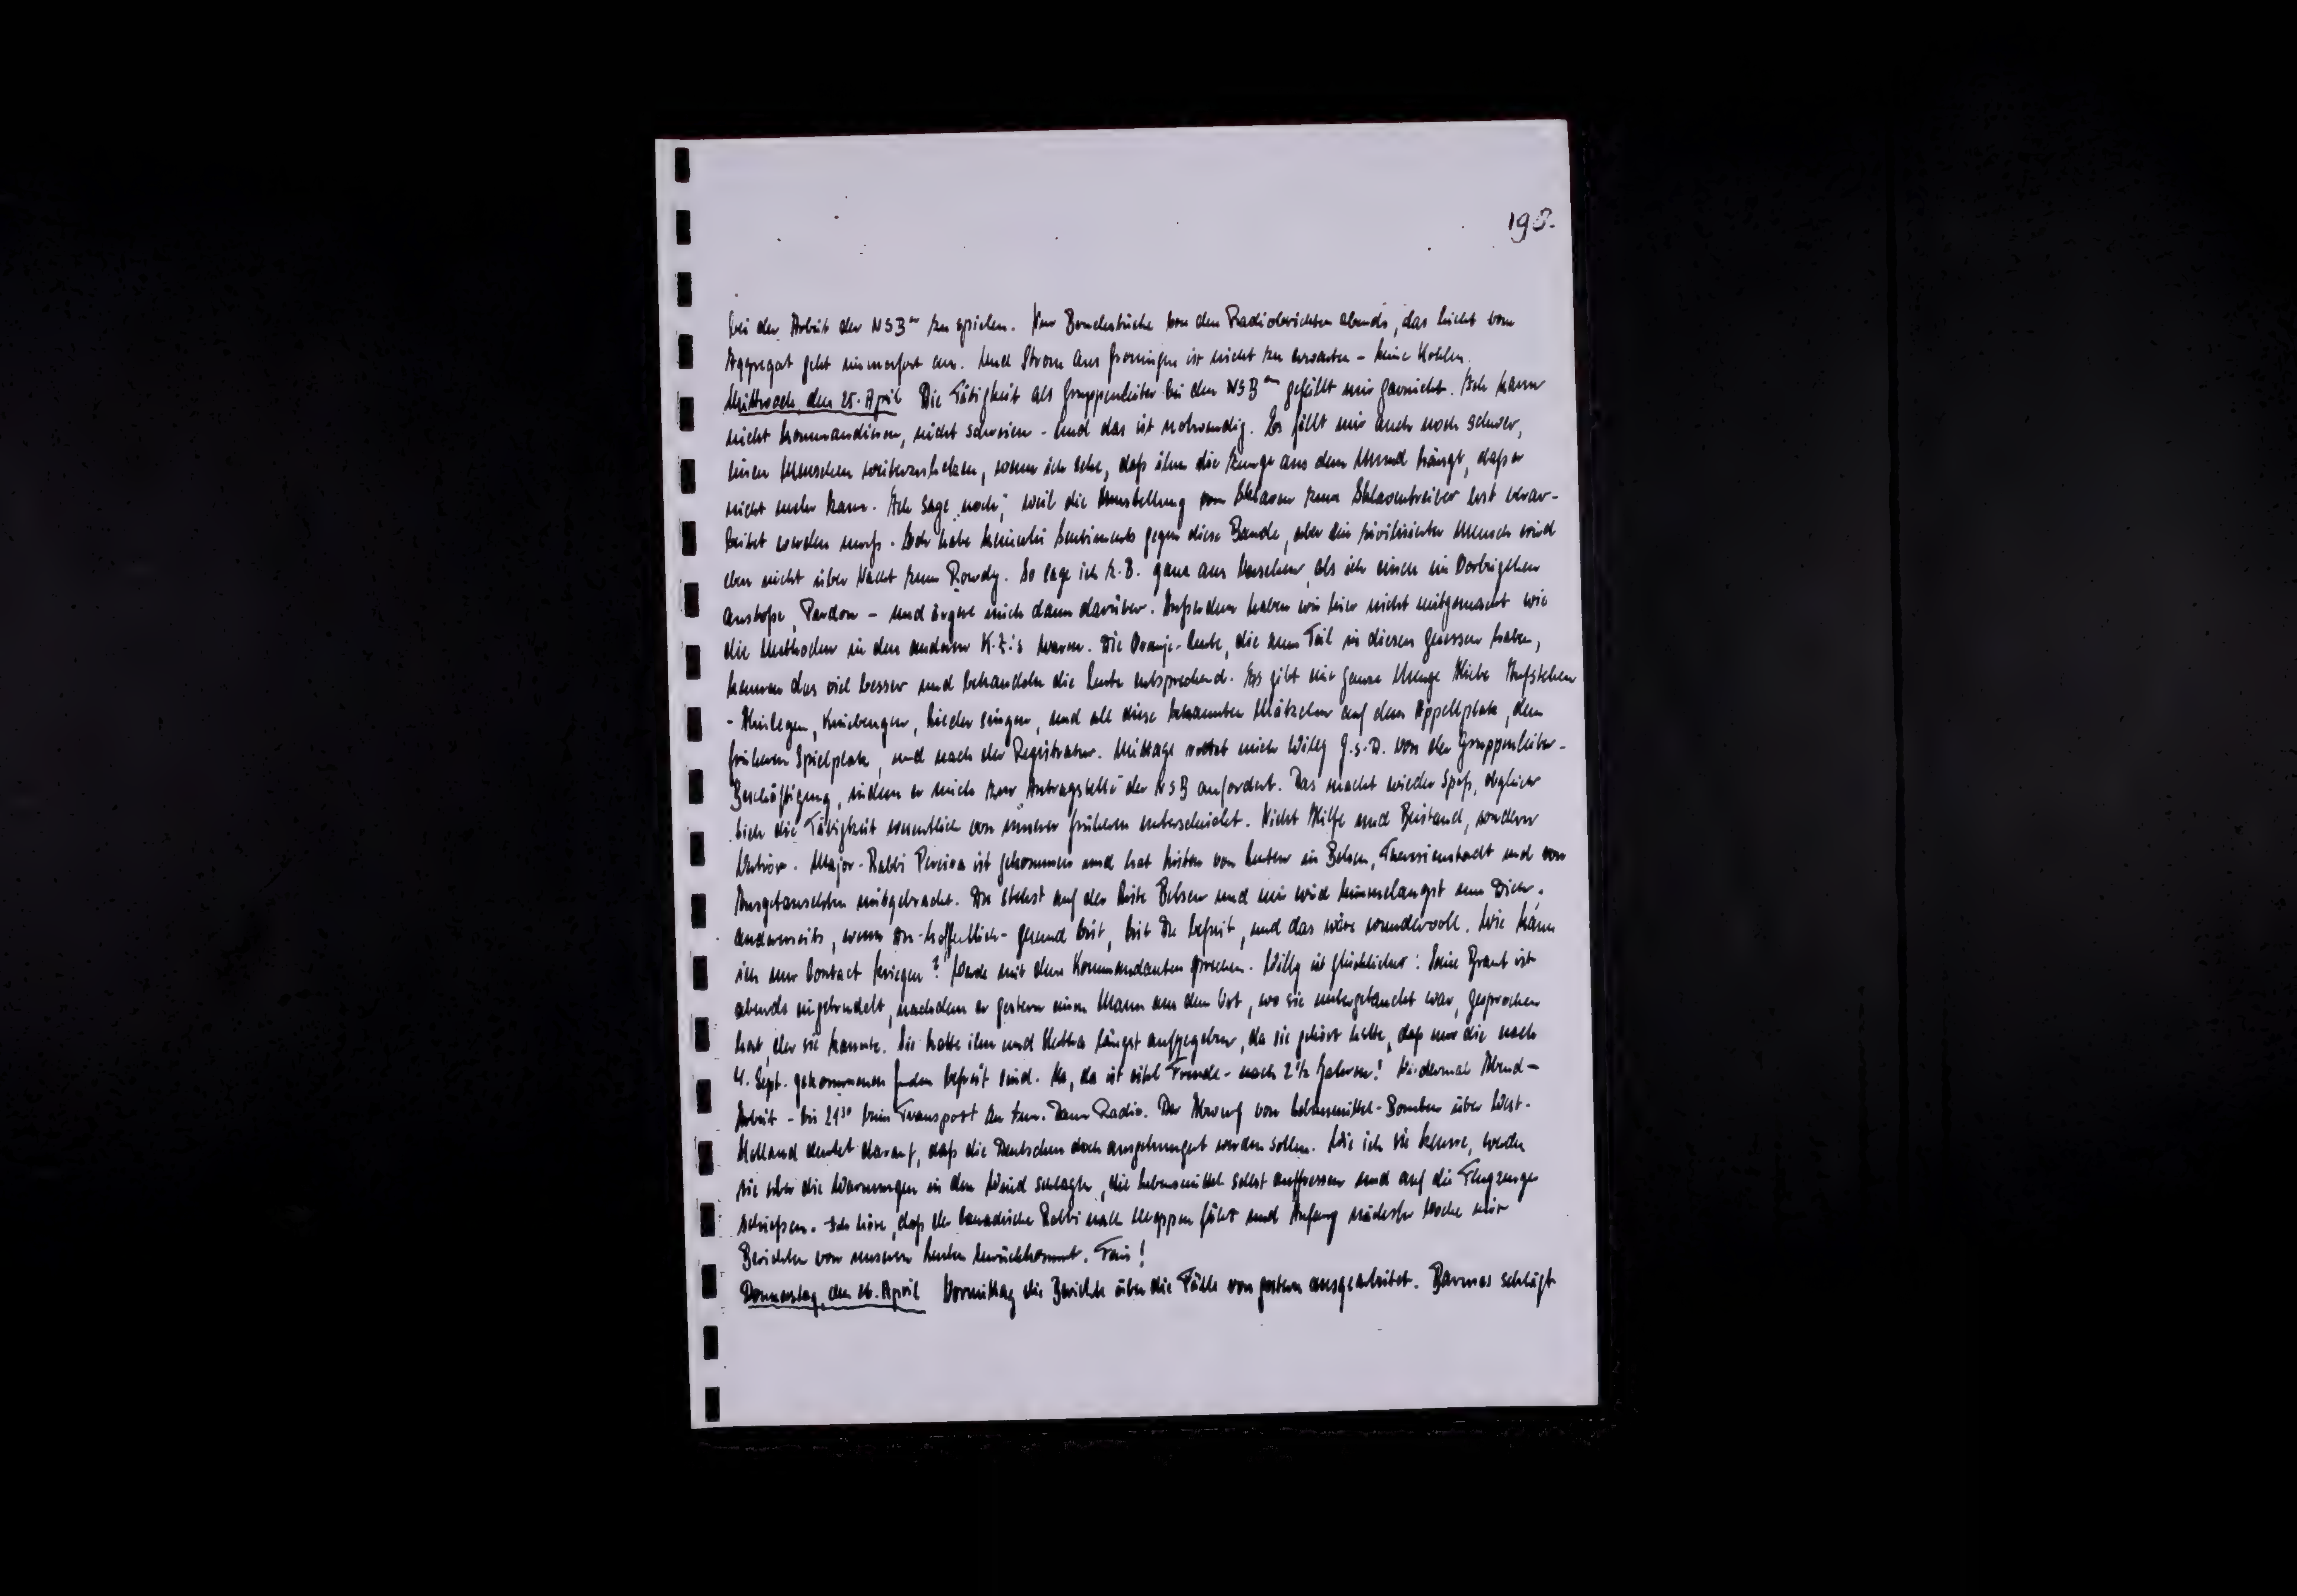 198.
bei der Arbeit der NSBer zu spielen. Nur Bruchstücke von den Radioberichten abends, das Licht vom
Aggregat geht immerfort aus. Und Strom aus Groningen ist nicht zu erwarten - keine Kohlen.
Mittwoch, den 25. April Die Tätigkeit als Gruppenleiter bei den NSBern gefällt mir garnicht. Ich kann
nicht kommandieren, nicht schreien - und das ist notwendig. Es fällt mir auch noch schwer,
einen Menschen weiterzuhetzen, wenn ich sehe, daß ihm die Zunge aus dem Mund hängt, daß er
nicht mehr kann. Ich sage "noch", weil die Umstellung vom Sklaven zum Sklaventreiber erst verar-
beitet werden muß. Ich habe keinerlei Sentiments gegen diese Bande, aber ein zivilisierter Mensch wird
eben nicht über Nacht zum Rowdy. So sage ich z.B. ganz aus Versehen, als ich einen im Vorbeigehen
anstoße, Pardon - und ärgere mich dann darüber. Außerdem haben wir hier nicht mitgemacht wie
die Methoden in den anderen K.Z.'s waren. Die Oranje-Leute, die zum Teil in diesen gesessen haben,
kennen das viel besser und behandeln die Leute entsprechend. Es gibt eine ganze Menge Hiebe Aufstehen
- Hinlegen, Kniebeugen, Lieder singen, und all diese bekannten Mätzchen auf dem Appellplatz, dem
früheren Spielplatz, und nach der Registratur. Mittags rettet mich Willy G.s.D. von der Gruppenleiter-
Beschäftigung, indem er mich zur Antragstelle der NSB anfordert. Das macht wieder Spaß, obgleich
sich die Tätigkeit wesentlich von unserer früheren unterscheidet. Nicht Hilfe und Beistand, sondern
Verhör. Major-Rabbi Pereira ist gekommen und hat Listen von Leuten in Belsen, Theresienstadt und von
Ausgetauschten mitgebracht. Du stehst auf der Liste Belsen und mir wird himmelangst um Dich.
andererseits, wenn Du - hoffentlich - gesund bist, bist Du befreit, und das wäre wundervoll. Wie kann
ich nur Contact kriegen? Werde mit dem Kommandanten sprechen. Willy ist glücklicher: Seine Braut ist
abends eingetrudelt, nachdem er gestern einen Mann aus dem Ort, wo sie untergetaucht war, gesprochen
hat, der sie kannte. Sie hatte ihn und Mutter längst aufgegeben, da sie gehört hatte, daß nur die nach
4. Sept. gekommenen Juden befreit sind. Na, da ist eitel Freude - nach 2½ Jahren! Wiedermal Abend-
Arbeit - bis 21³⁰ beim Transport Dann Radio. Der Abwurf von Lebensmittel-Bomben über West-
Holland deutet darauf, daß die Deutschen doch ausgehungert werden sollen. Wie ich sie kenne, werden
sie aber die Warnungen in den Wind schlagen, die Lebensmittel selbst auffressen und auf die Flugzeuge
schießen. Ich höre, daß der canadische Rabbi nach Meppen fährt und Anfang nächster Woche mit
Berichten von unseren Leuten zurückkommt. Fein!
Donnerstag, den 26. April Vormittag die Berichte über die Fälle von gestern ausgearbeitet. schlägt